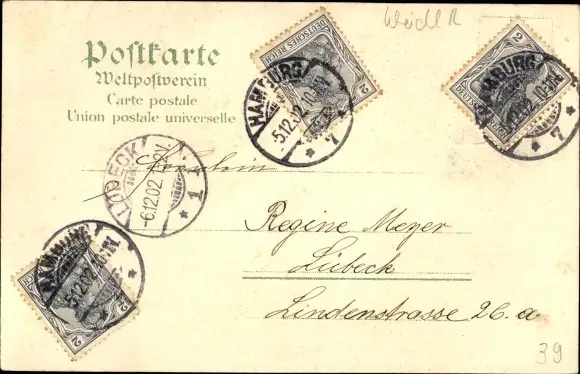 Postkarte
Weltpostverein
Carte postale
Union postale universelle
DEUTSCHES REICH
HAMBURG
5.12.02.10-11N.
* 7 *
2
HAMBURG
5.12.02.10-11N.
* 7 *
LÜBECK
6.12.02
* 1 *
Fräulein
Regine Meyer
Lübeck
Lindenstrasse 26. a
HAMBURG
5.12.02.10-11N.
2
2
39